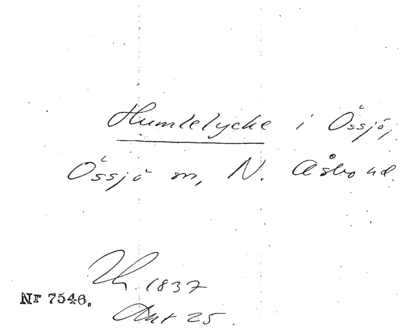 Humlelycke i Össjö,
Össjö sn, N. Åsbo hd.
Th. 1837
Nr 7546.
Akt 25.